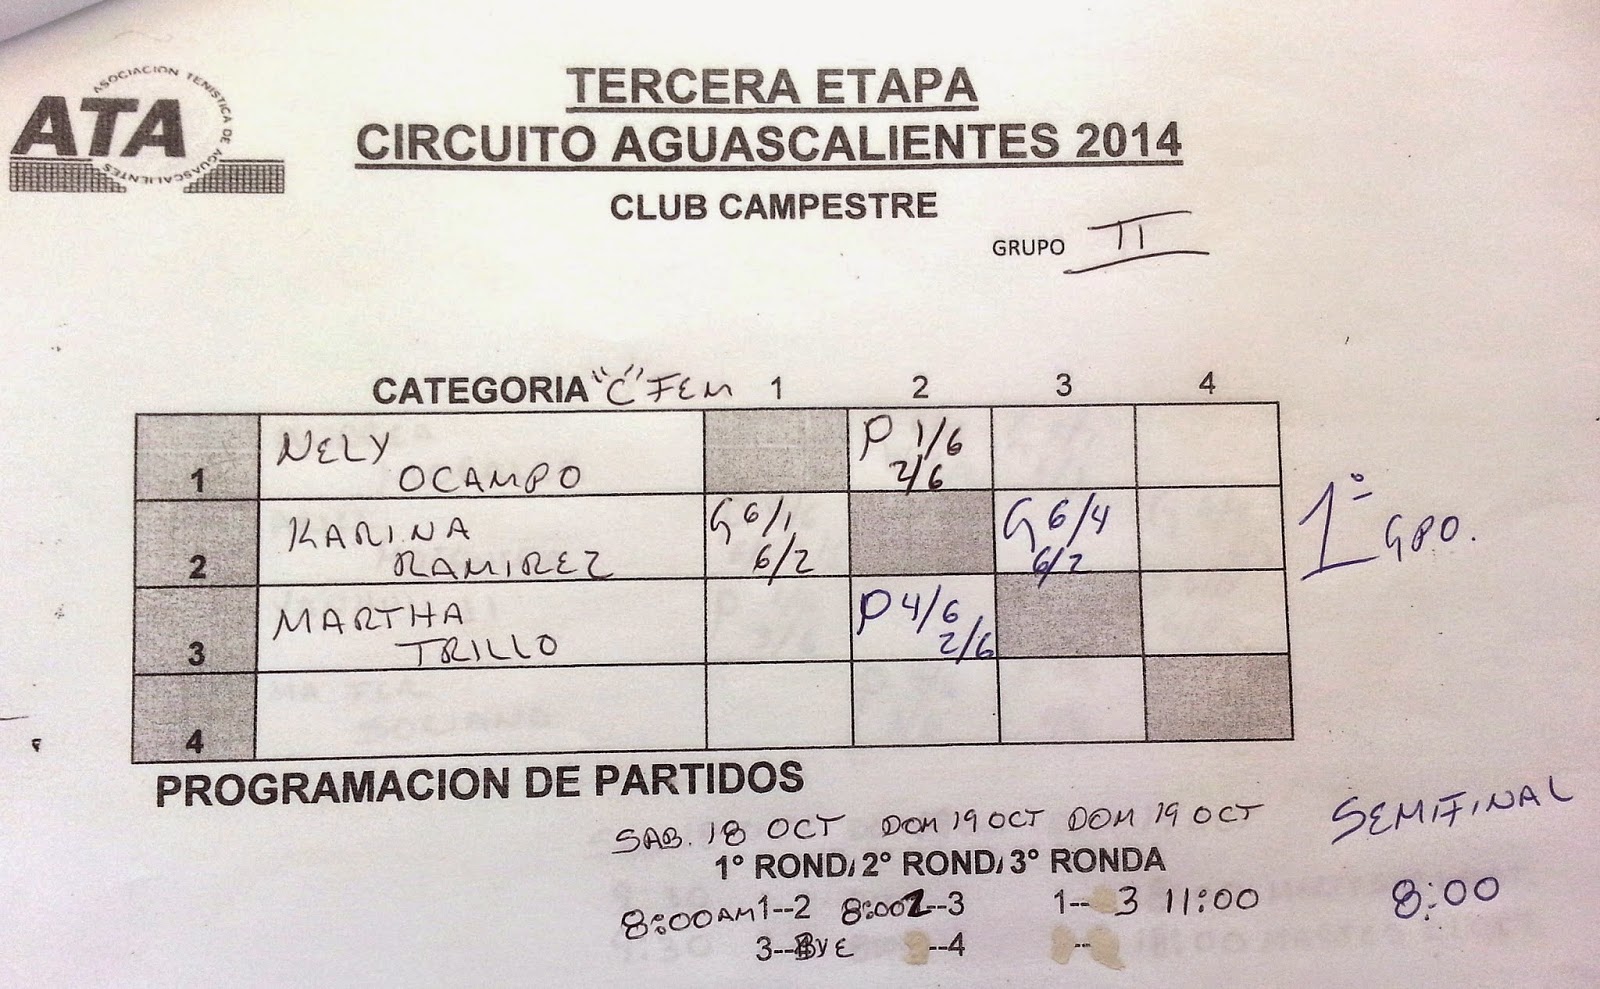 ASOCIACION TENISTICA DE AGUASCALIENTES
ATA
TERCERA ETAPA
CIRCUITO AGUASCALIENTES 2014
CLUB CAMPESTRE
GRUPO II
CATEGORIA "C" FEM 1 2 3 4
1 NELY OCAMPO P 1/6 2/6
2 KARINA RAMIREZ G 6/1 6/2 G 6/4 6/2 1° GPO.
3 MARTHA TRILLO P 4/6 2/6
4
PROGRAMACION DE PARTIDOS
SAB. 18 OCT DOM 19 OCT DOM 19 OCT SEMIFINAL
1° RONDA 2° RONDA 3° RONDA
8:00AM 1--2 8:00 2--3 1-- 3 11:00 8:00
3-- BYE --4 --